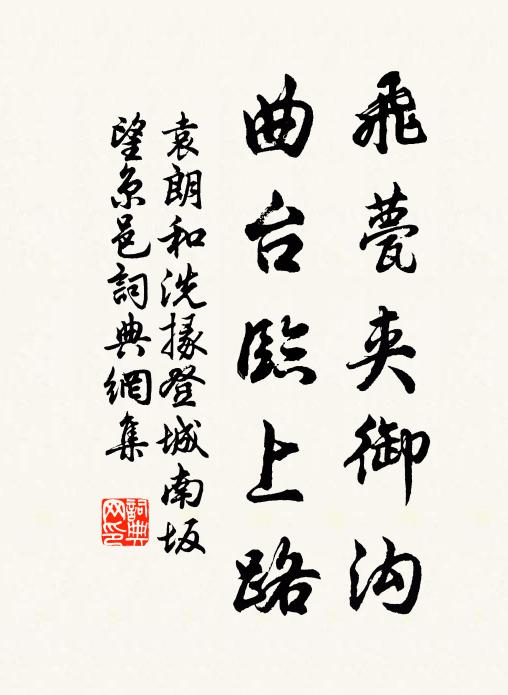 飛甍夾御沟
曲台臨上路
袁朗和洗掾登城南坂
望京邑詞典網集
詞典
网印